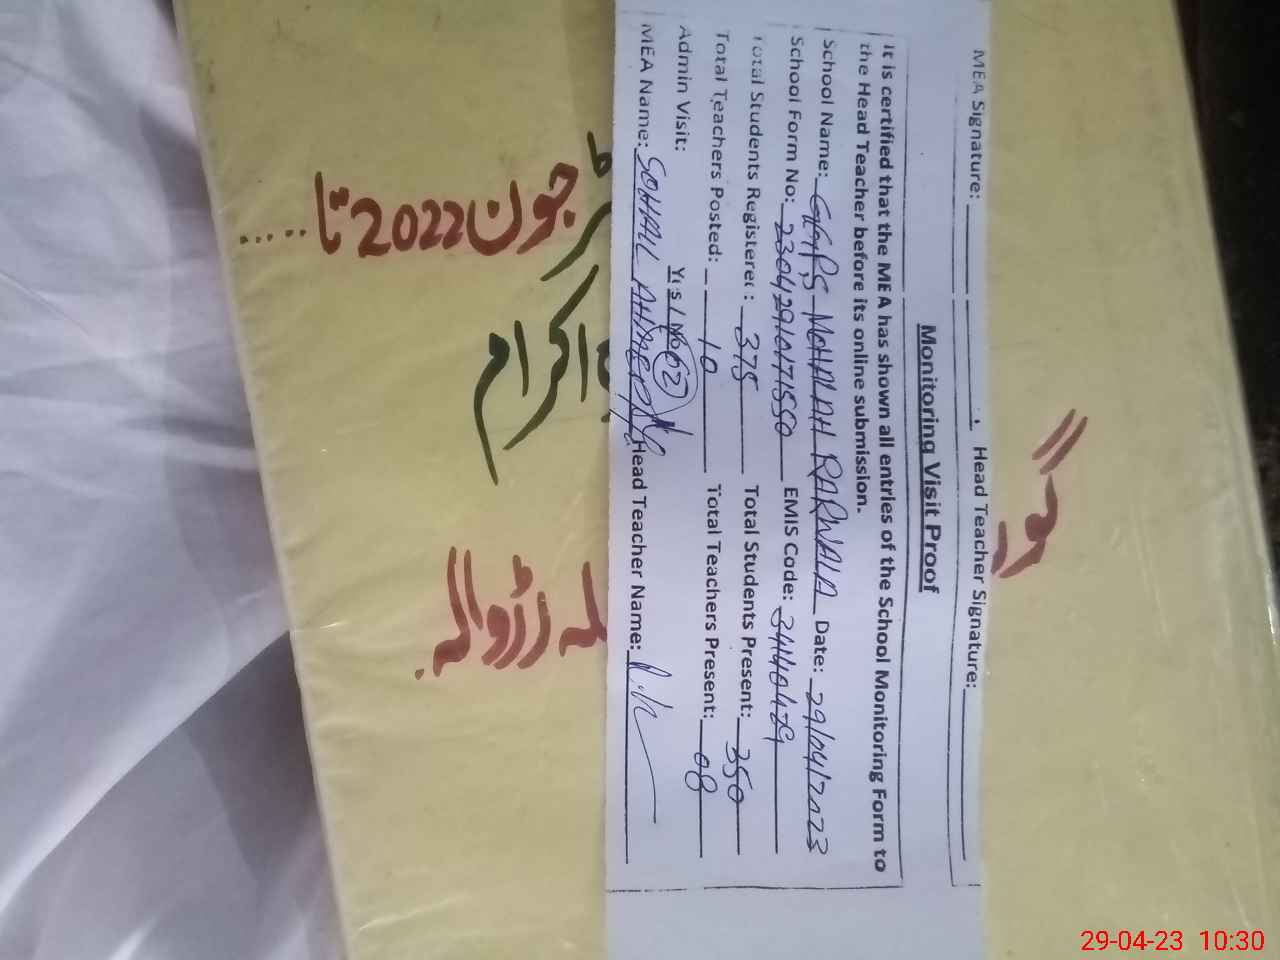 MEA Signature: Head Teacher Signature:
Monitoring Visit Proof
It is certified that the MEA has shown all entries of the School Monitoring Form to
the Head Teacher before its online submission.
School Name: GGPS MOHALAH RARWALA Date: 29/04/2023
School Form No: 23042910171550 EMIS Code: 34140429
Total Students Registered: 375 Total Students Present: 350
Total Teachers Posted: 10 Total Teachers Present: 08
Admin Visit: Yes / No 02
MEA Name: SOHAIL AHMED Head Teacher Name:
اکرام
جون 2022 تا .....
لہ رڑوالہ
29-04-23 10:30